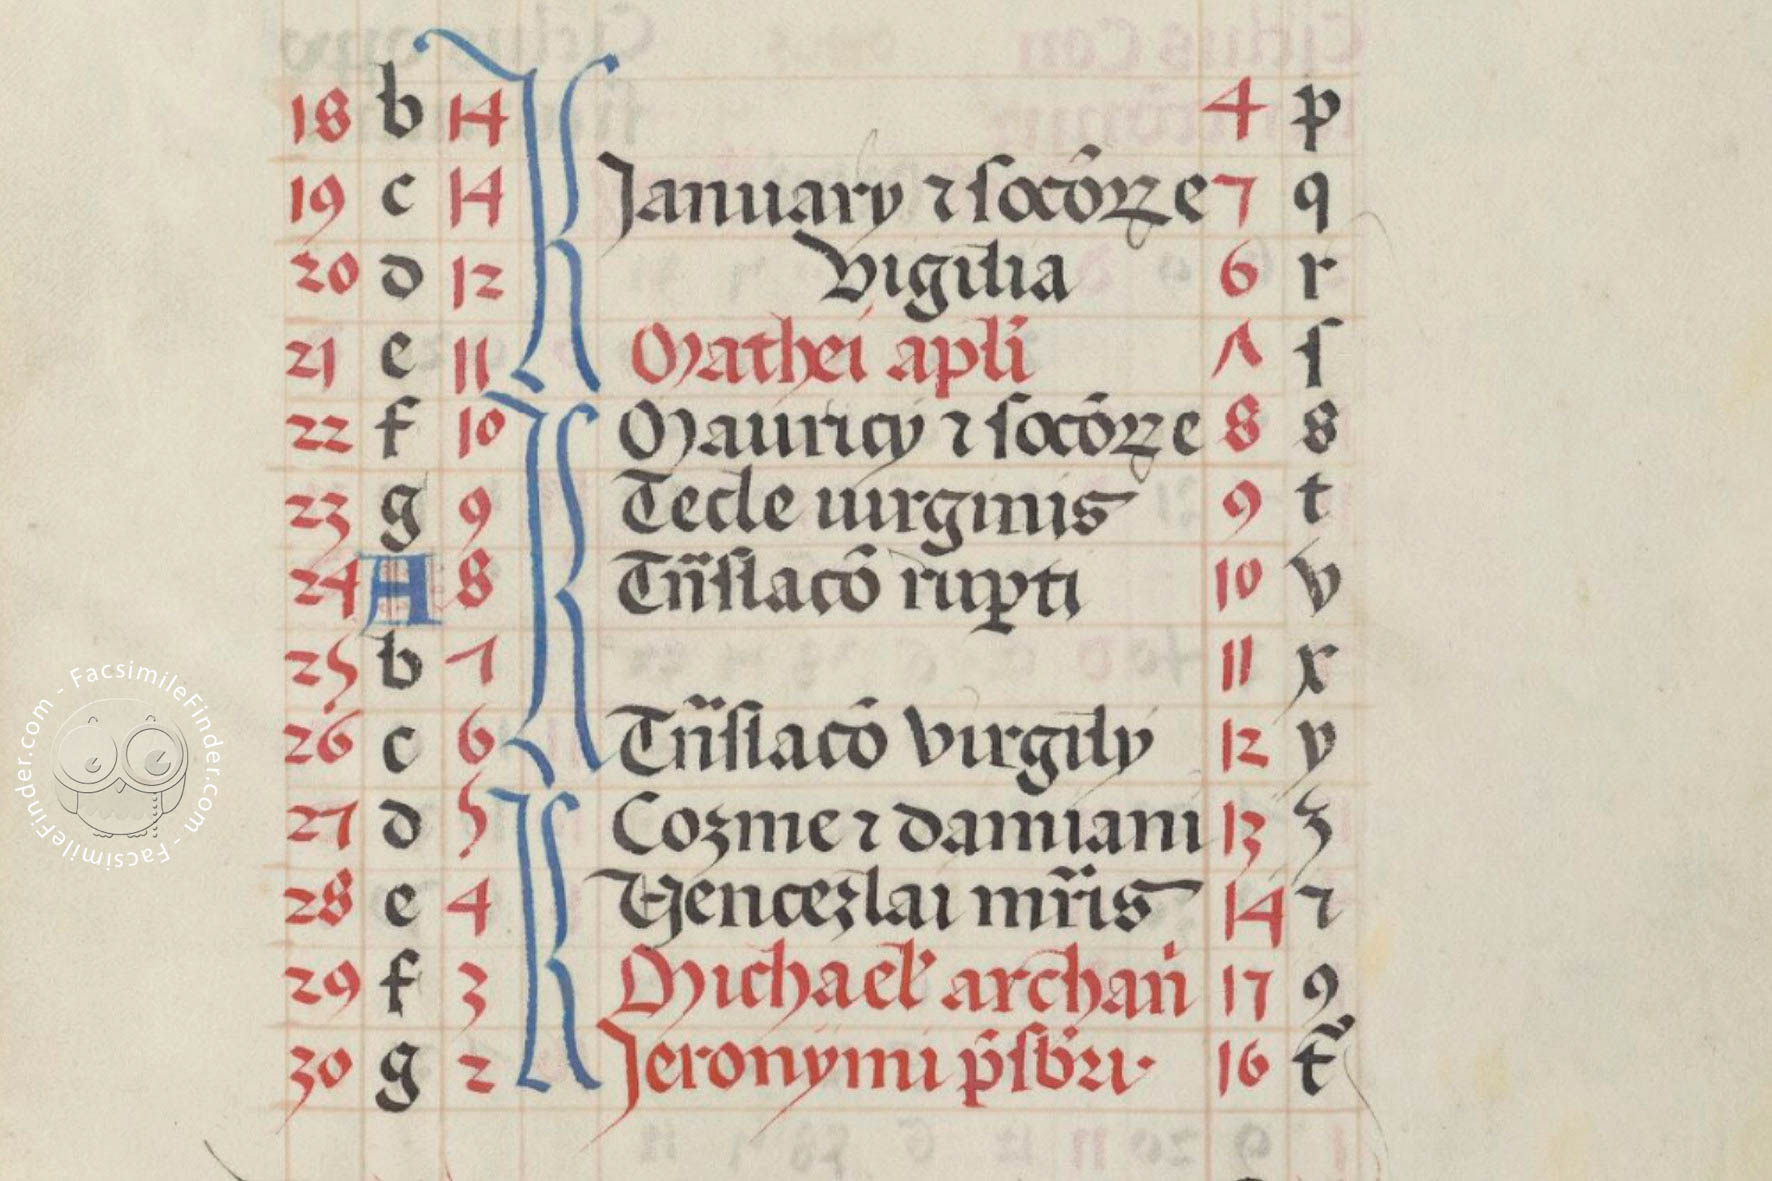 18 b 14 K 4 p
19 c 14 January ⁊ socõꝝ e 7 q
20 d 12 Vigilia 6 r
21 e 11 Mathei apli 7 ſ
22 f 10 K Mauricy ⁊ socõꝝ e 8 s
23 g 9 Tecle uirginis 9 t
24 A 8 Trñslacõ rup̱ti 10 v
25 b 7 11 x
26 c 6 Trñslacõ Virgily 12 y
27 d 5 K Cozme ⁊ damiani 13 z
28 e 4 Wenceslai mr̃is 14 ⁊
29 f 3 Michael archañ 17 9
30 g 2 Jeronymi p̃sbr̃i 16 t̃
FacsimileFinder.com - FacsimileFinder.com -